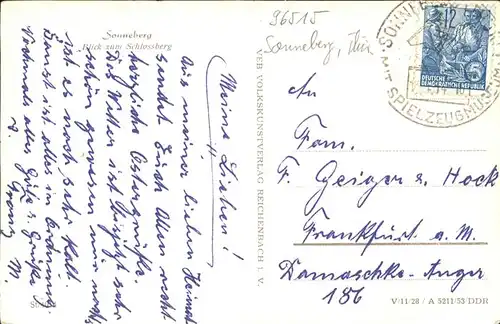 Sonneberg
Blick zum Schlossberg
96515
Sonneberg, Thür
12
DEUTSCHE
DEMOKRATISCHE REPUBLIK
MIT SPIELZEUGMUSEUM
Meine Lieben!
Aus meiner lieben Heimat
sendet Euch Allen recht
herzliche Ostergrüße.
Das Wetter ist jetzt sehr
schön gewesen nur noch
ist es noch sehr kalt.
Sonst ist alles in Ordnung.
Nochmals alles Gute u. Grüße
VEB VOLKSKUNSTVERLAG REICHENBACH I. V.
An
Fam.
F. Geiger u. Hock
Frankfurt a. M.
Damaschke-Anger
186
V/11/28 / A 5211/53 DDR